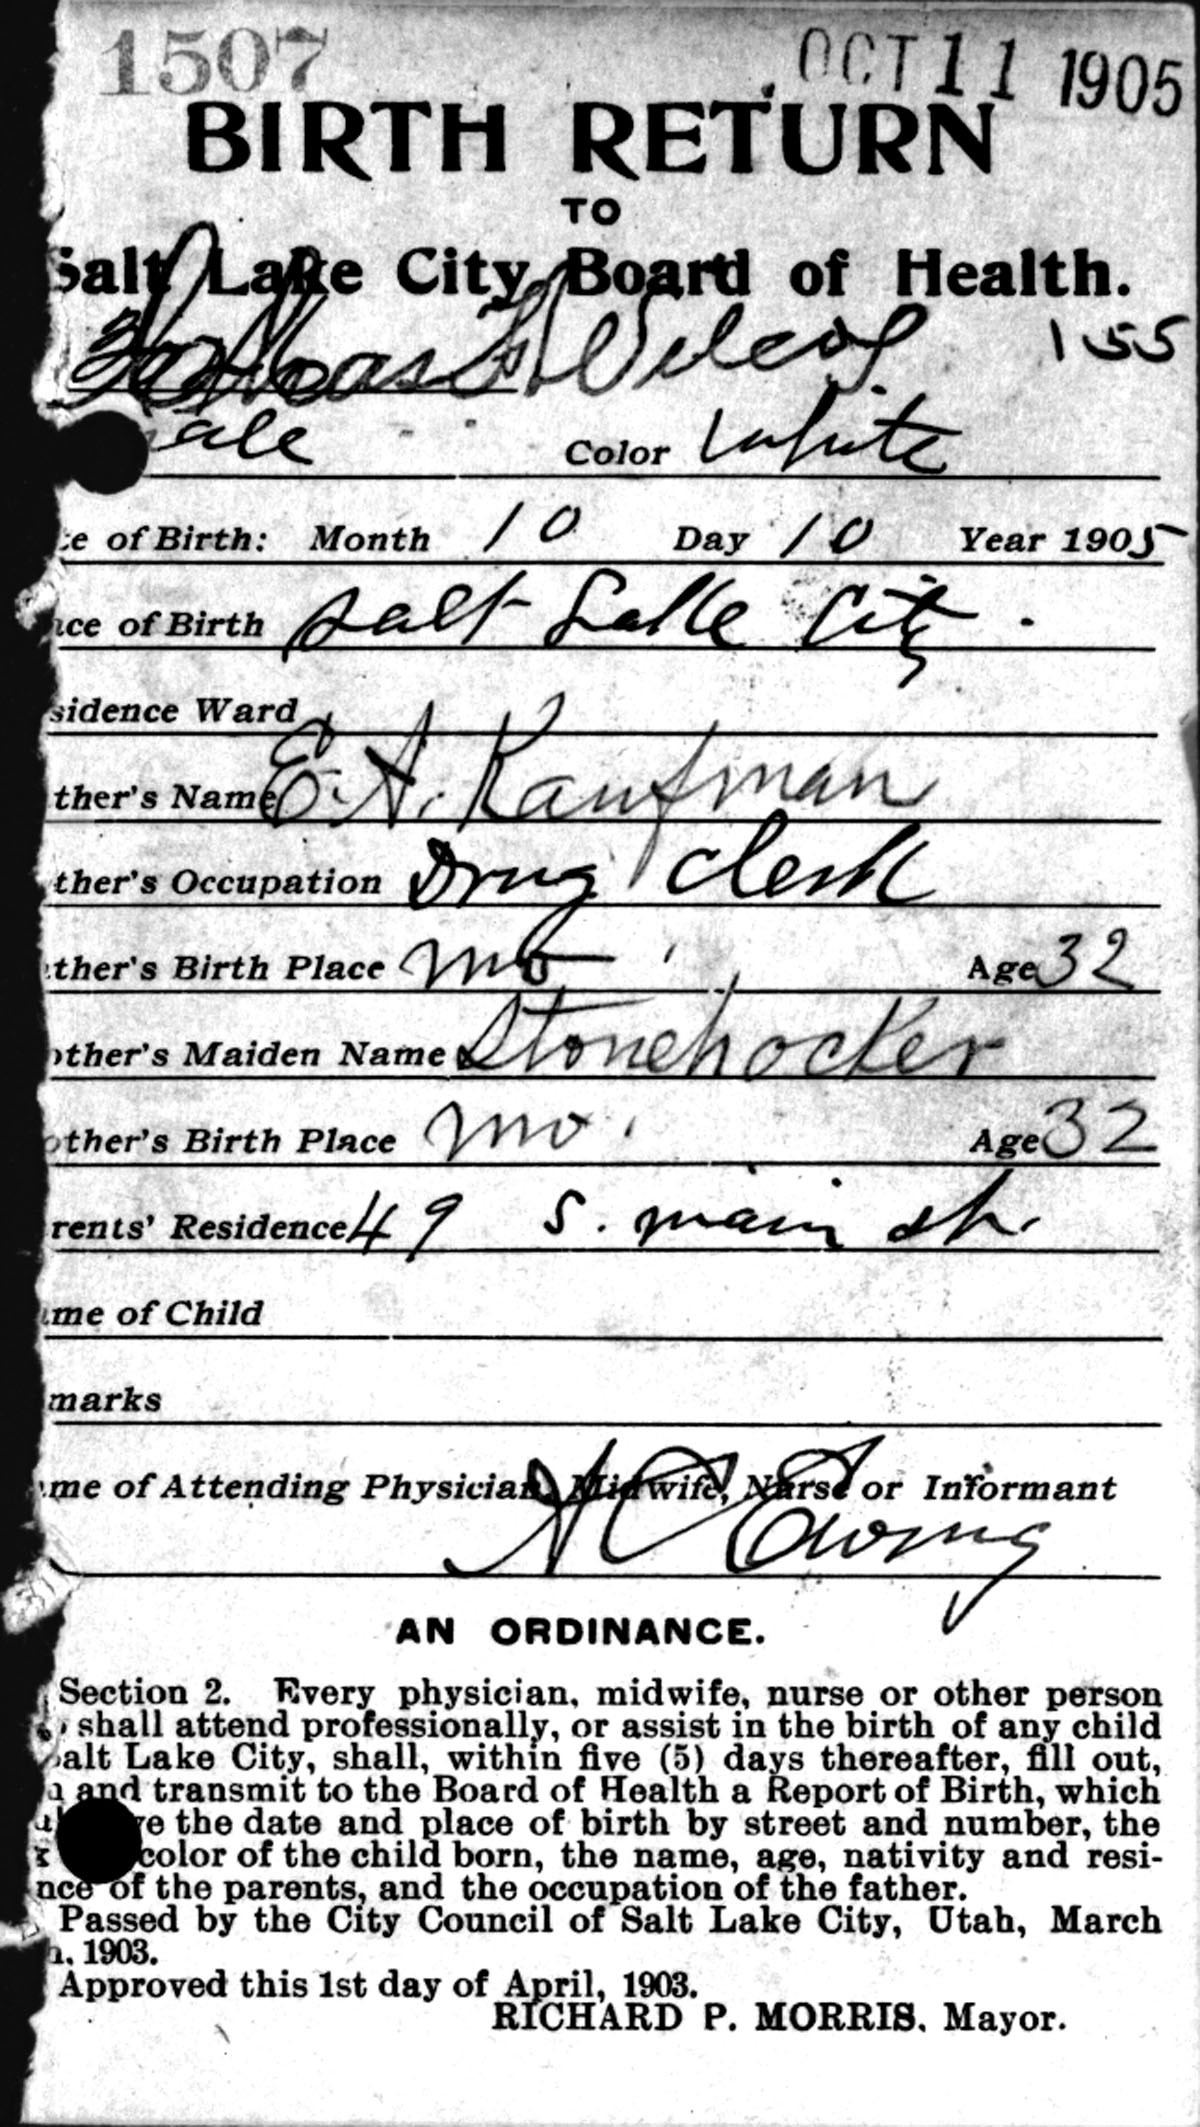 1507 OCT 11 1905
BIRTH RETURN
TO
Salt Lake City Board of Health.
Wilcox 155
ale Color White
te of Birth: Month 10 Day 10 Year 1905
ace of Birth Salt Lake City.
sidence Ward
ther's Name E. A. Kaufman
ther's Occupation Drug Clerk
ther's Birth Place Mo Age 32
other's Maiden Name Stonehocker
other's Birth Place Mo. Age 32
rents' Residence 49 S. Main St.
me of Child
marks
me of Attending Physician, Midwife, Nurse or Informant
A C Ewing
AN ORDINANCE.
Section 2. Every physician, midwife, nurse or other person
shall attend professionally, or assist in the birth of any child
Salt Lake City, shall, within five (5) days thereafter, fill out,
and transmit to the Board of Health a Report of Birth, which
ve the date and place of birth by street and number, the
color of the child born, the name, age, nativity and resi-
nce of the parents, and the occupation of the father.
Passed by the City Council of Salt Lake City, Utah, March
1903.
Approved this 1st day of April, 1903.
RICHARD P. MORRIS, Mayor.